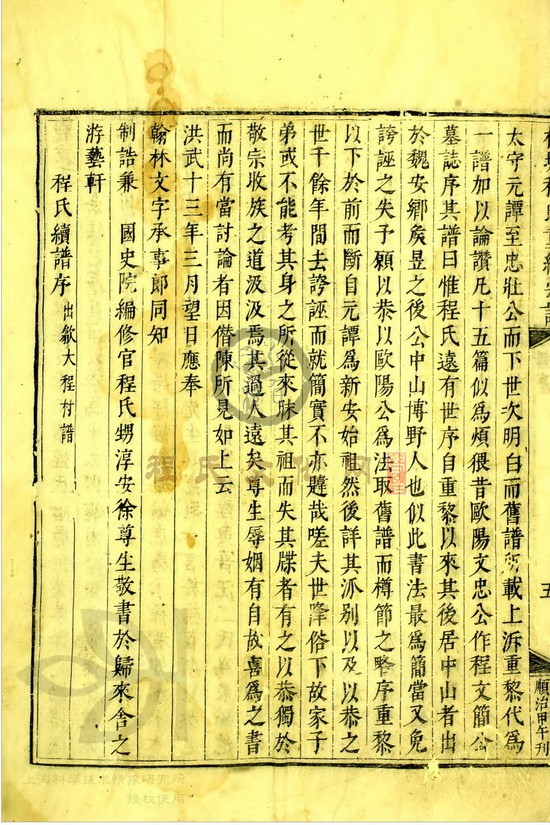 太守元譚至忠壯公而下世次明白而舊譜所載上泝重黎代爲
一譜加以論讚凡十五篇似爲煩猥昔歐陽文忠公作程文簡公
墓誌序其譜曰惟程氏遠有世序自重黎以來其後居中山者出
於魏安鄉矦昱之後公中山博野人也似此書法最爲簡當又免
誇誣之失予願以恭以歐陽公爲法取舊譜而樽節之畧序重黎
以下於前而斷自元譚爲新安始祖然後詳其派別以及以恭之
世千餘年間去誇誣而就簡實不亦韙哉嗟夫世降俗下故家子
弟或不能考其身之所從來昧其祖而失其牒者有之以恭獨於
敬宗收族之道汲汲焉其過人遠矣尊生辱姻有自故喜爲之書
而尚有當討論者因僭陳所見如上云
洪武十三年三月望日應奉
翰林文字承事郎同知
制誥兼 國史院編修官程氏甥淳安徐尊生敬書於歸來舍之
游藝軒
程氏續譜序 出歙大程村譜
五
順治甲午刊
程氏文化
上海科学技术情报研究所
授权使用